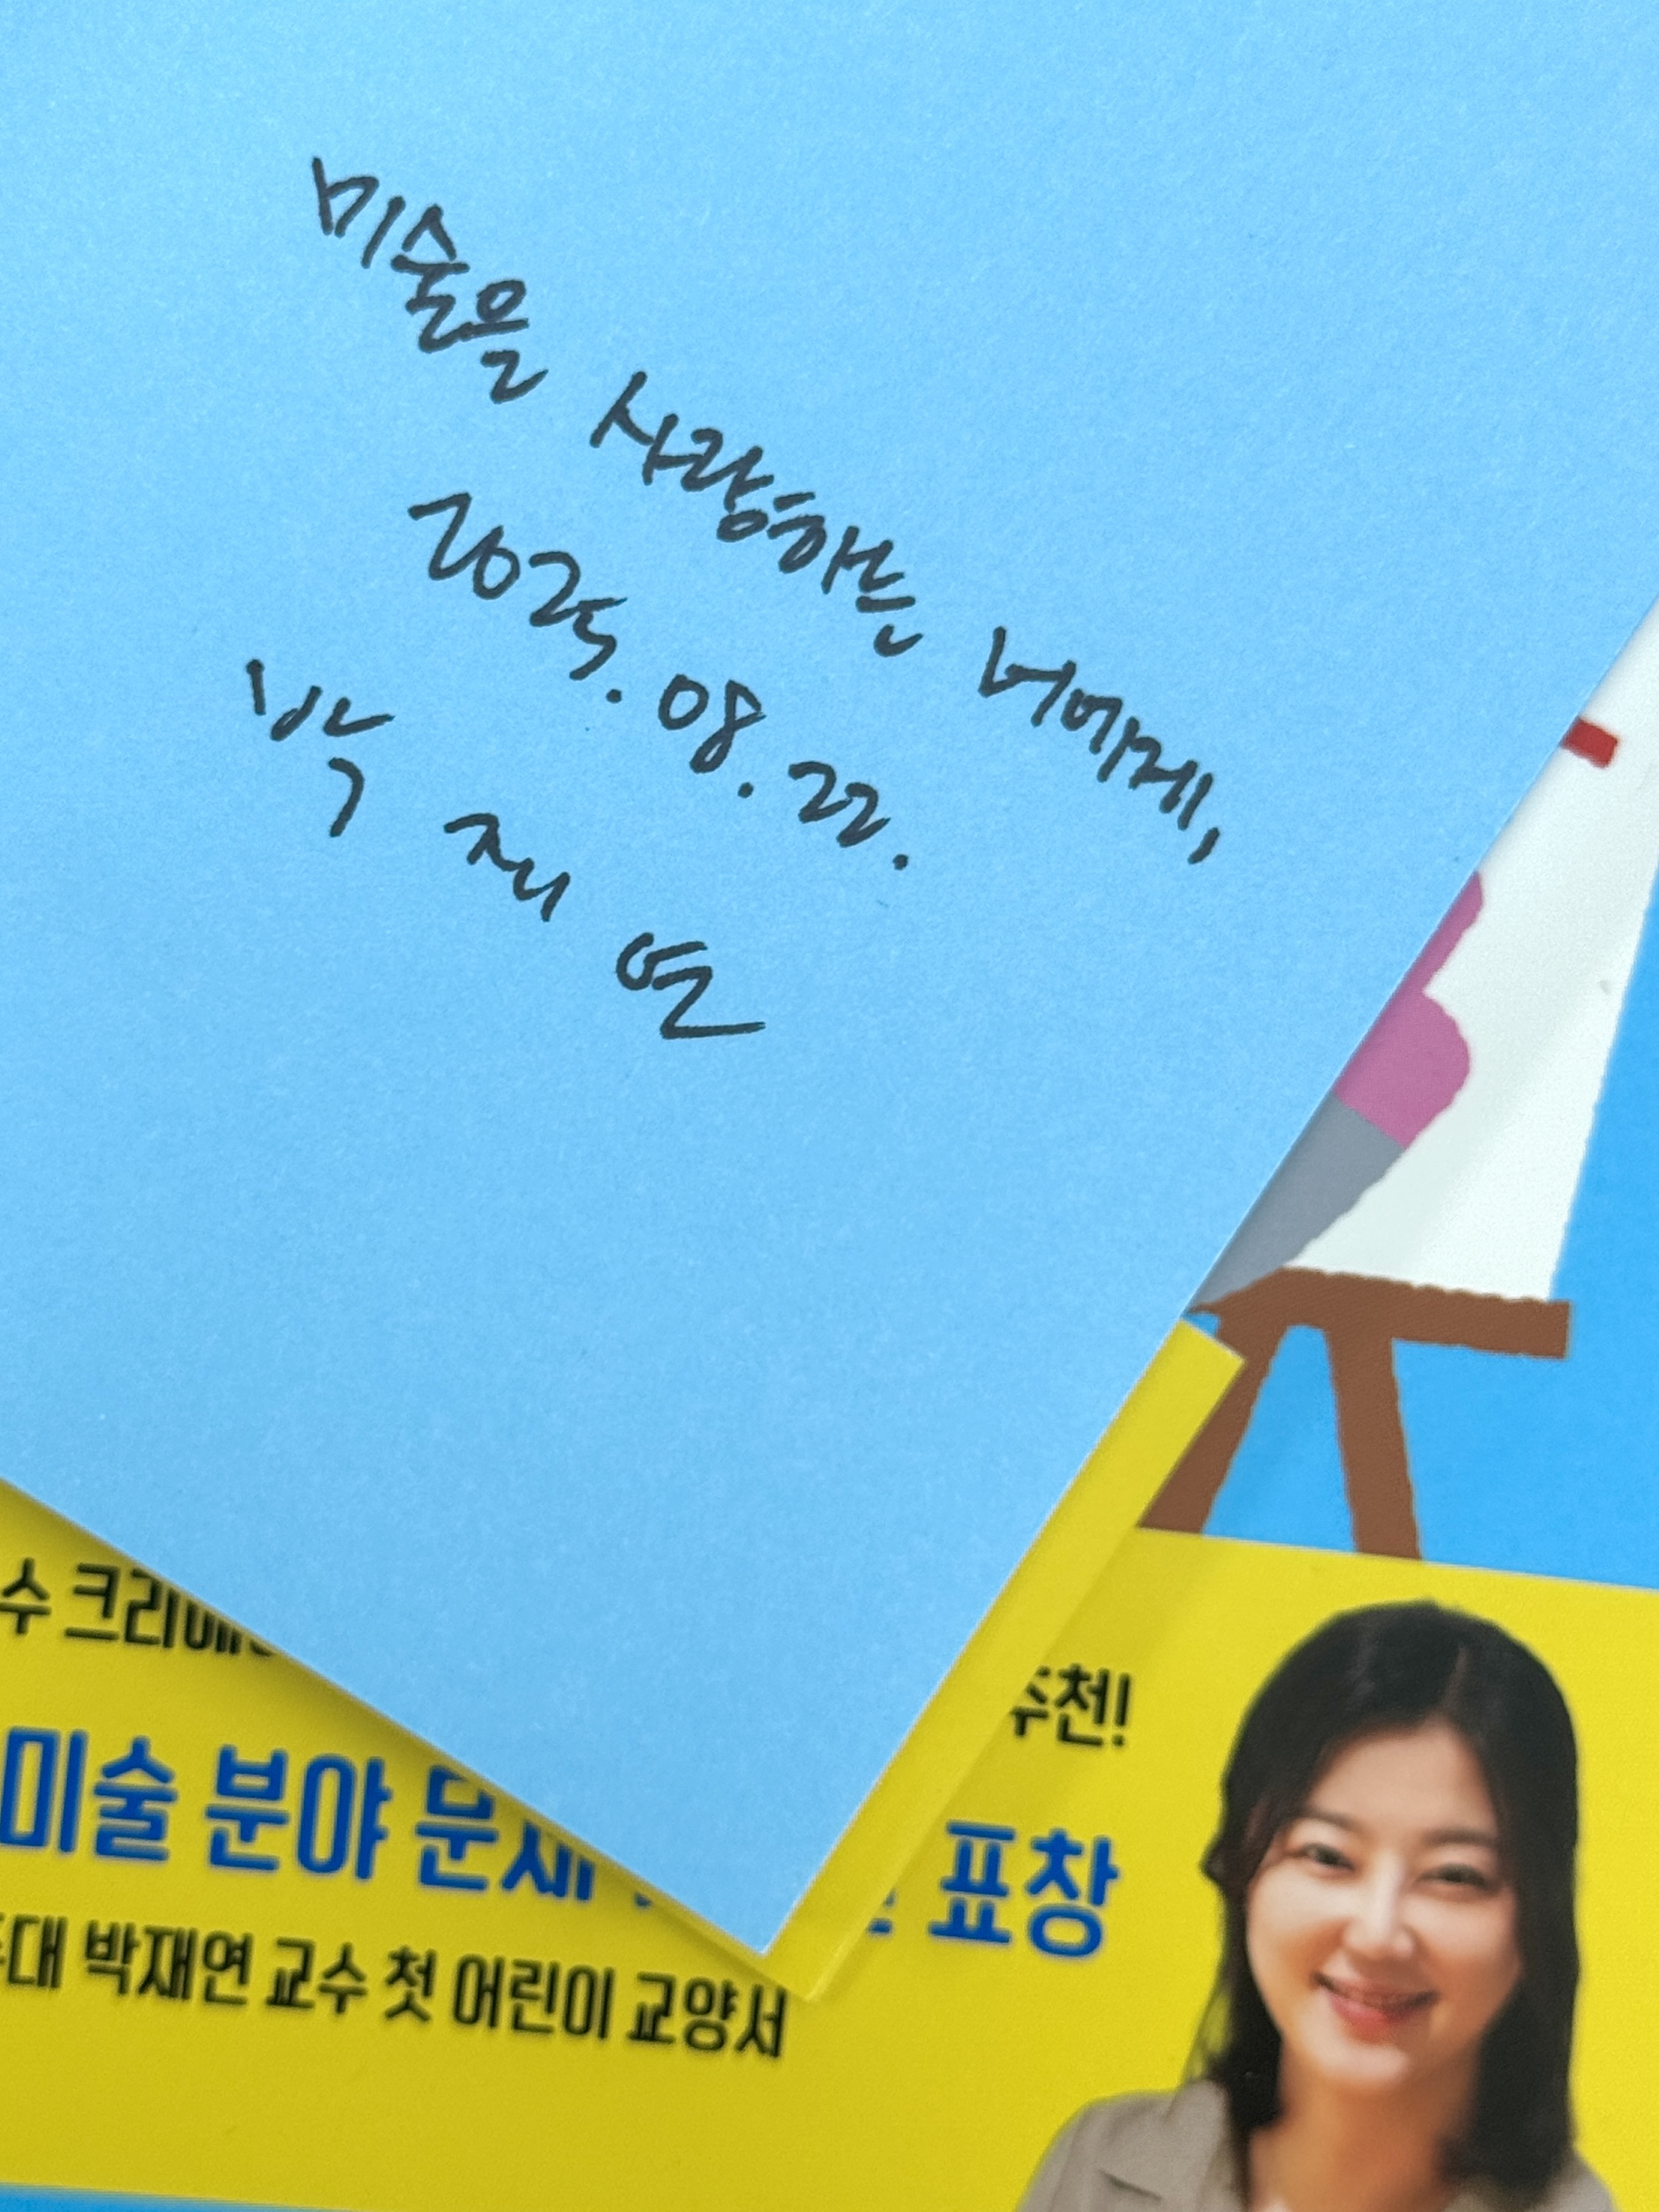 미술을 사랑하는 너에게,
2025. 08. 22.
박 재 연
수 크리에
추천!
미술 분야 문체
표창
대 박재연 교수 첫 어린이 교양서